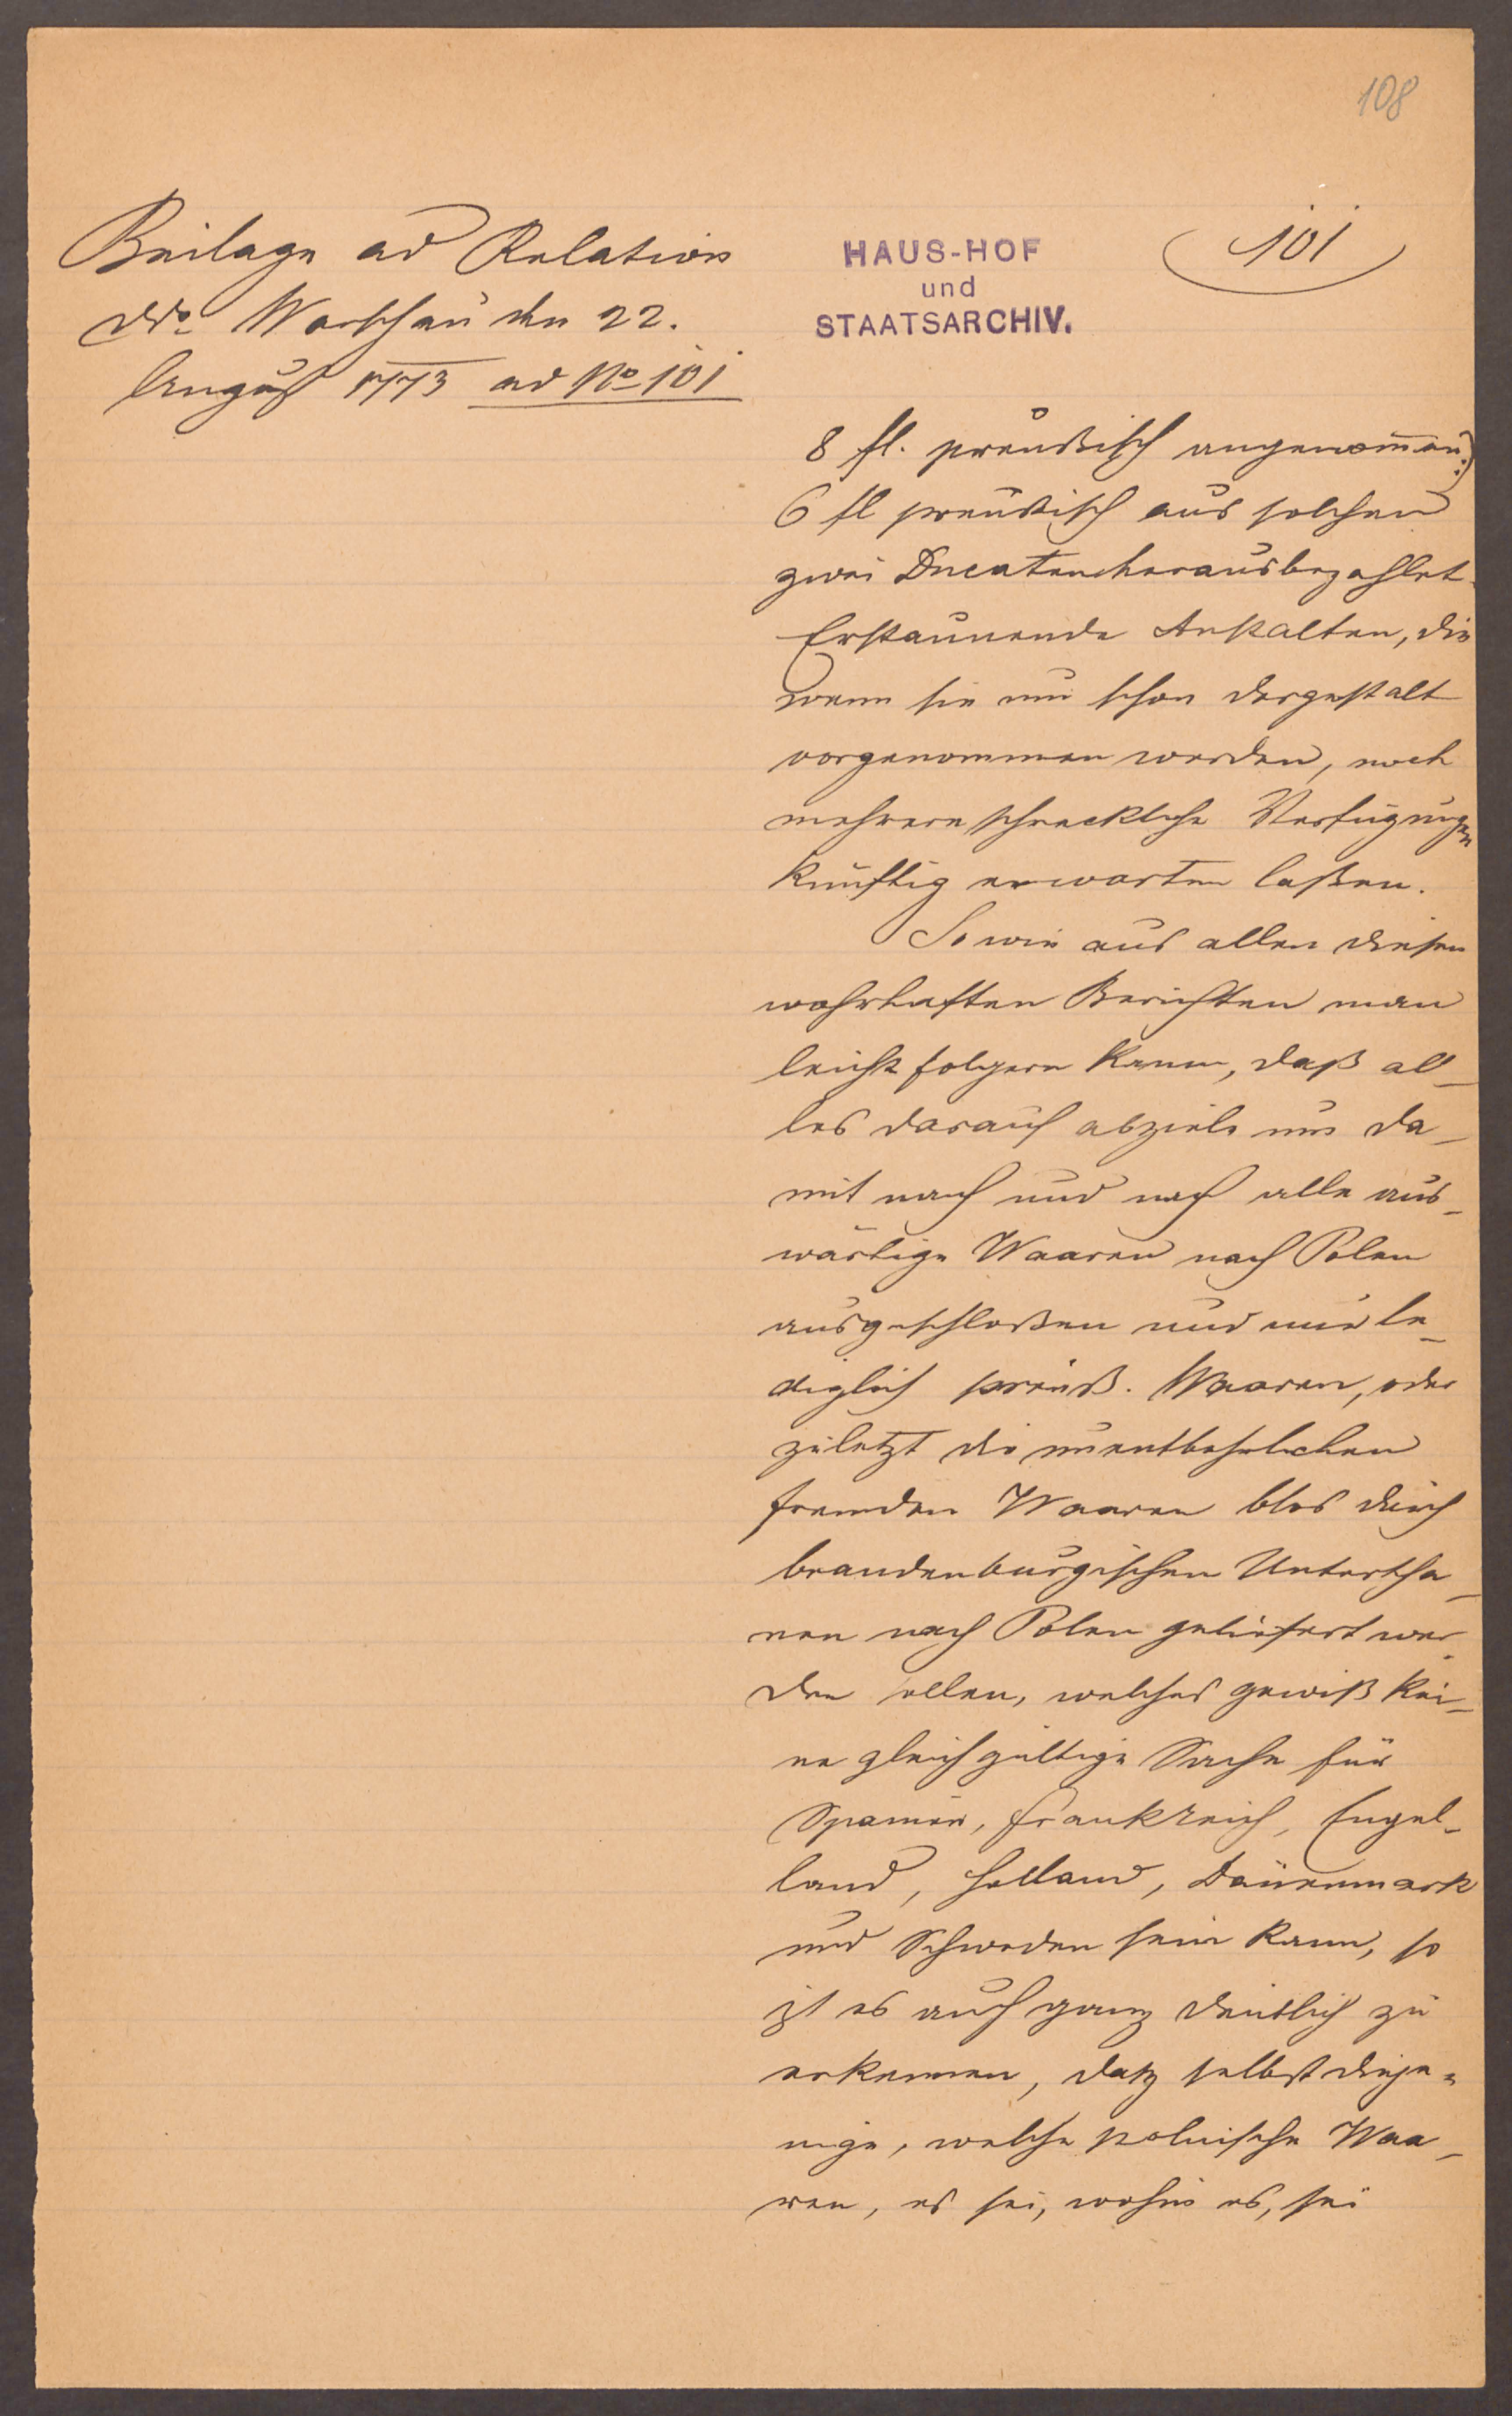 108
Beilage ad Relation
ddo Warschau den 22.
August 1773 ad No 101
HAUS-HOF
und
STAATSARCHIV.
101
8 fl. preußisch angenom̅en:)
6 fl preußisch aus solchen
zwei Ducaten herausbezahlet.
Erstaunende Anstalten, die
wenn sie nun schon dergestalt
vorgenommen werden, noch
mehrere schreckliche Verfügungen
künftig erwarten laßen.
So wie aus allen diesen
wahrhaften Berichten man
leicht folgern kann, daß al-
les darauf abziele um da-
mit nach und nach alle aus-
wärtige Waaren nach Polen
ausgeschloßen und nur le-
diglich preuß. Waaren, oder
zuletzt die unentbehrlichen
fremden Waaren blos durch
brandenburgischen Untertha-
nen nach Polen geliefert wer-
den sollen, welches gewiß kei-
ne gleichgültige Sache für
Spanien, Frankreich, Engel-
land, Holland, Dännemark
und Schweden sein kann, so
ist es auch ganz deutlich zu
erkennen, daß selbst dieje-
nige, welche polnische Waa-
ren, es sei, wohin es, sei